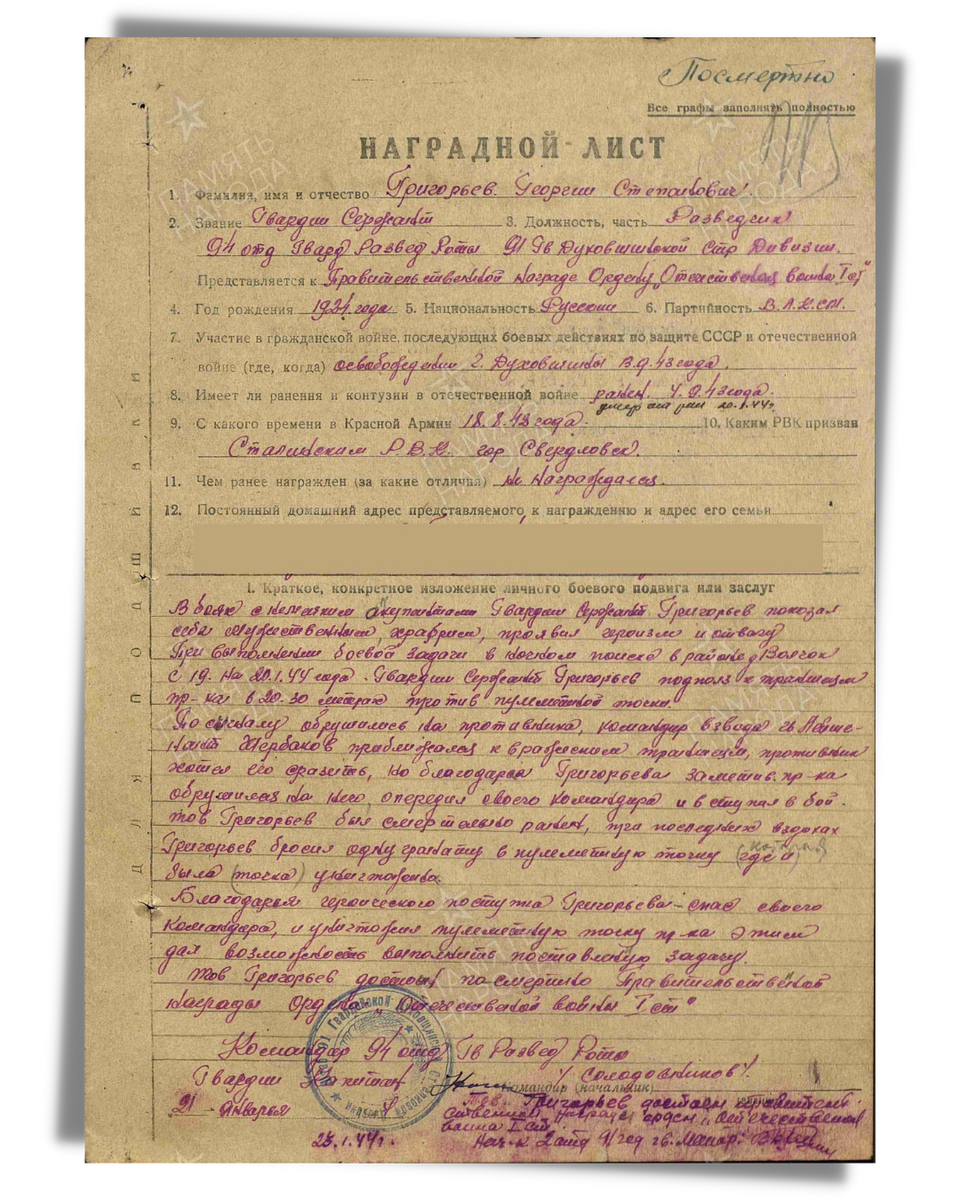 Посмертно
Все графы заполнять полностью
НАГРАДНОЙ ЛИСТ
1. Фамилия, имя и отчество Григорьев Георгий Степанович
2. Звание Гвардии Сержант 3. Должность, часть Разведчик
94 отд Гвард Развед Роты 91 Гв Духовщинской Стр Дивизии.
Представляется к Правительственной награде Ордену „Отечественная война I ст"
4. Год рождения 1924 года 5. Национальность Русский 6. Партийность В.Л.К.С.М.
7. Участие в гражданской войне, последующих боевых действиях по защите СССР и отечественной
войне (где, когда) освобождении г. Духовщины в 9.43 года.
8. Имеет ли ранения и контузии в отечественной войне ранен 4.9.43 года.
20.1.44г.
9. С какого времени в Красной Армии 18.8.43 года. 10. Каким РВК призван
Сталинским Р.В.К. гор Свердловск.
11. Чем ранее награжден (за какие отличия) не награждался.
12. Постоянный домашний адрес представляемого к награждению и адрес его семьи
I. Краткое, конкретное изложение личного боевого подвига или заслуг
В боях с немецкими окупантами Гвардии Сержант Григорьев показал
себя мужественным, храбрым, проявил героизм и отвагу
При выполнении боевой задачи в ночном поиске в районе д Волчок
с 19. на 20.1.44 года. Гвардии Сержант Григорьев подполз к траншеям
пр-ка в 20-30 метрах против пулеметной точки.
По сигналу обрушилось на противника, командир взвода гв Лейте-
нант Жербаков приближался к вражеским траншеям, противник
хотел его сразить, но благодаря Григорьева заметив пр-ка
обрушился на него, опередил своего командира и вступил в бой.
тов Григорьев был смертельно ранен, при последних вздохах
Григорьев бросил одну гранату в пулеметную точку (где и) которая
была (точка) уничтожена.
Благодаря героического поступка Григорьева - спас своего
командира, и уничтожил пулеметную точку пр-ка этим
дал возможность выполнить поставленную задачу.
Тов Григорьев достоин посмертно Правительственной
награды Ордена „Отечественной войны I ст"
Командир 94 отд Гв Развед Роты
Гвардии Капитан / Солодовников /
Командир (начальник)
21 - Январья
Тов. Григорьев достоин правитель-
ственной награды орден „Отечественная
война I ст.
25.1.44г.
Нач-к 2 отд 91 гсд гв. майор:
Для подшивки
ПАМЯТЬ НАРОДА